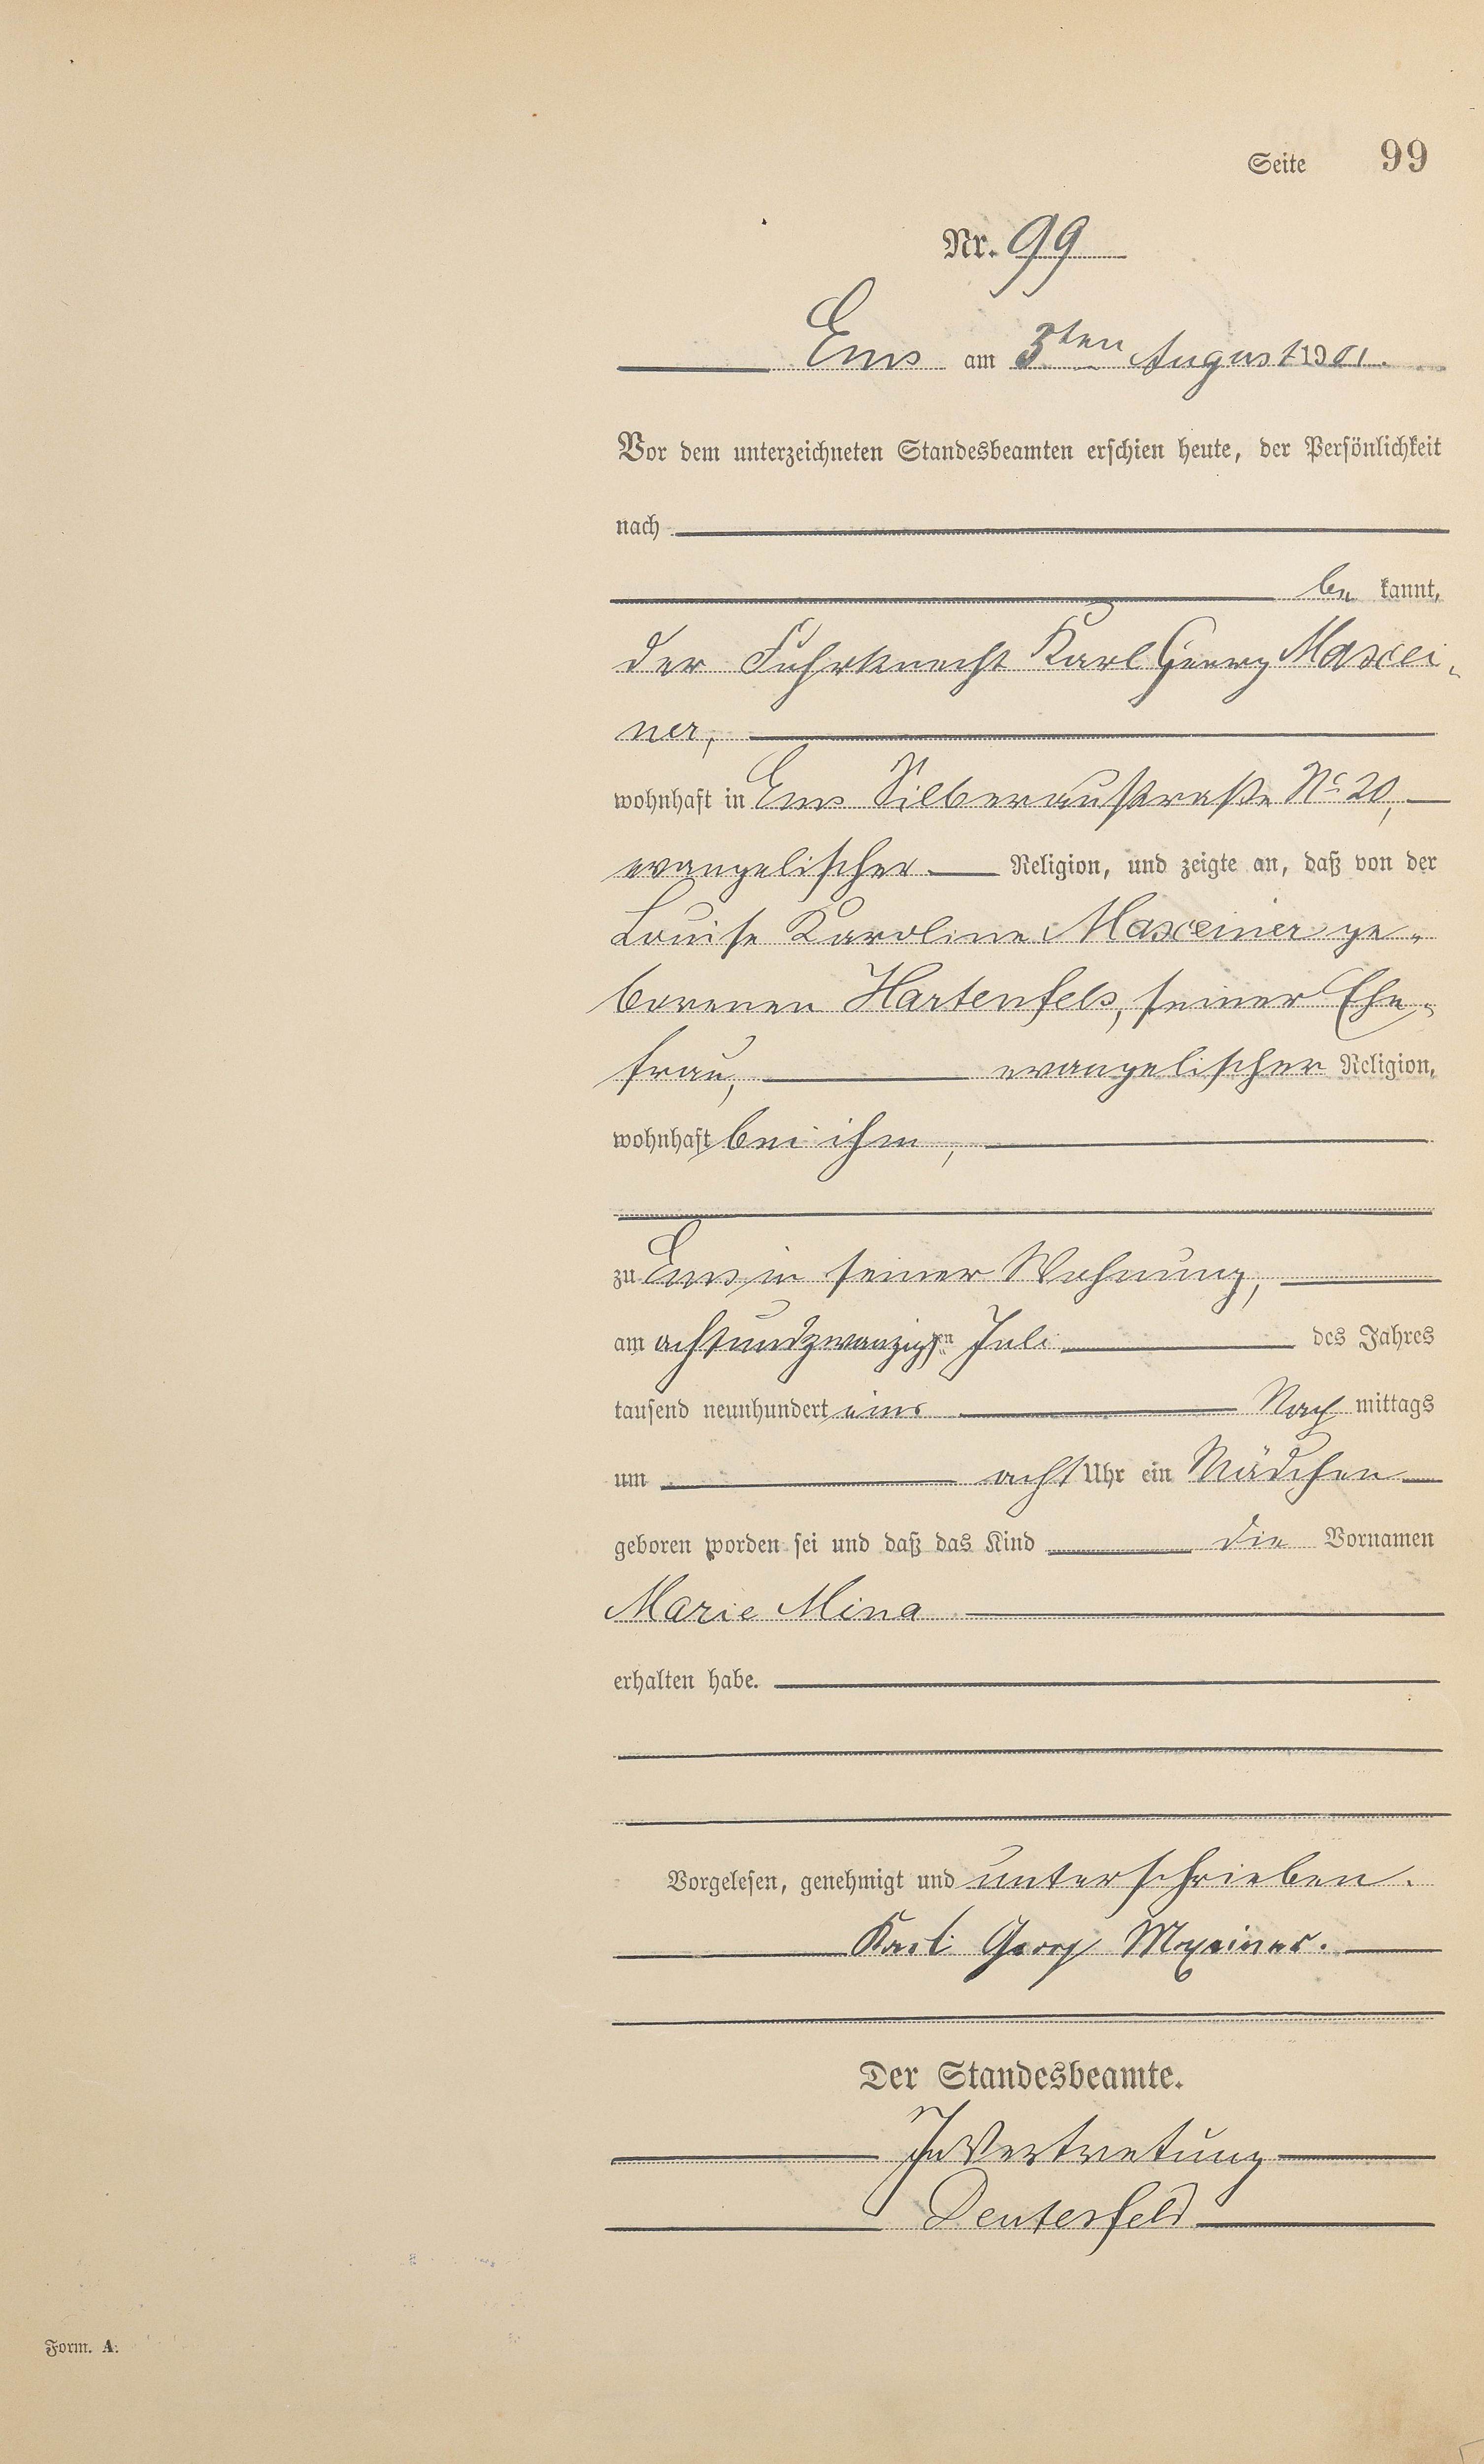 Seite 99
Nr. 99
Ems am 3ten August 1901.
Vor dem unterzeichneten Standesbeamten erschien heute, der Persönlichkeit
nach
be kannt,
der Fuhrknecht Karl Georg Maxei-
ner,
wohnhaft in Ems Silberaustraße No 20,
evangelischer Religion, und zeigte an, daß von der
Louise Karoline Maxeiner ge-
borenen Hartenfels, seiner Ehe-
frau, evangelischer Religion,
wohnhaft bei ihm,
zu Ems in seiner Wohnung,
am achtundzwanzigsten Juli des Jahres
tausend neunhundert eins Nach mittags
um acht Uhr ein Mädchen
geboren worden sei und daß das Kind die Vornamen
Marie Mina
erhalten habe.
Vorgelesen, genehmigt und unterschrieben.
Karl Georg Maxeiner.
Der Standesbeamte.
In Vertretung
Deusterfeld
Form. A.